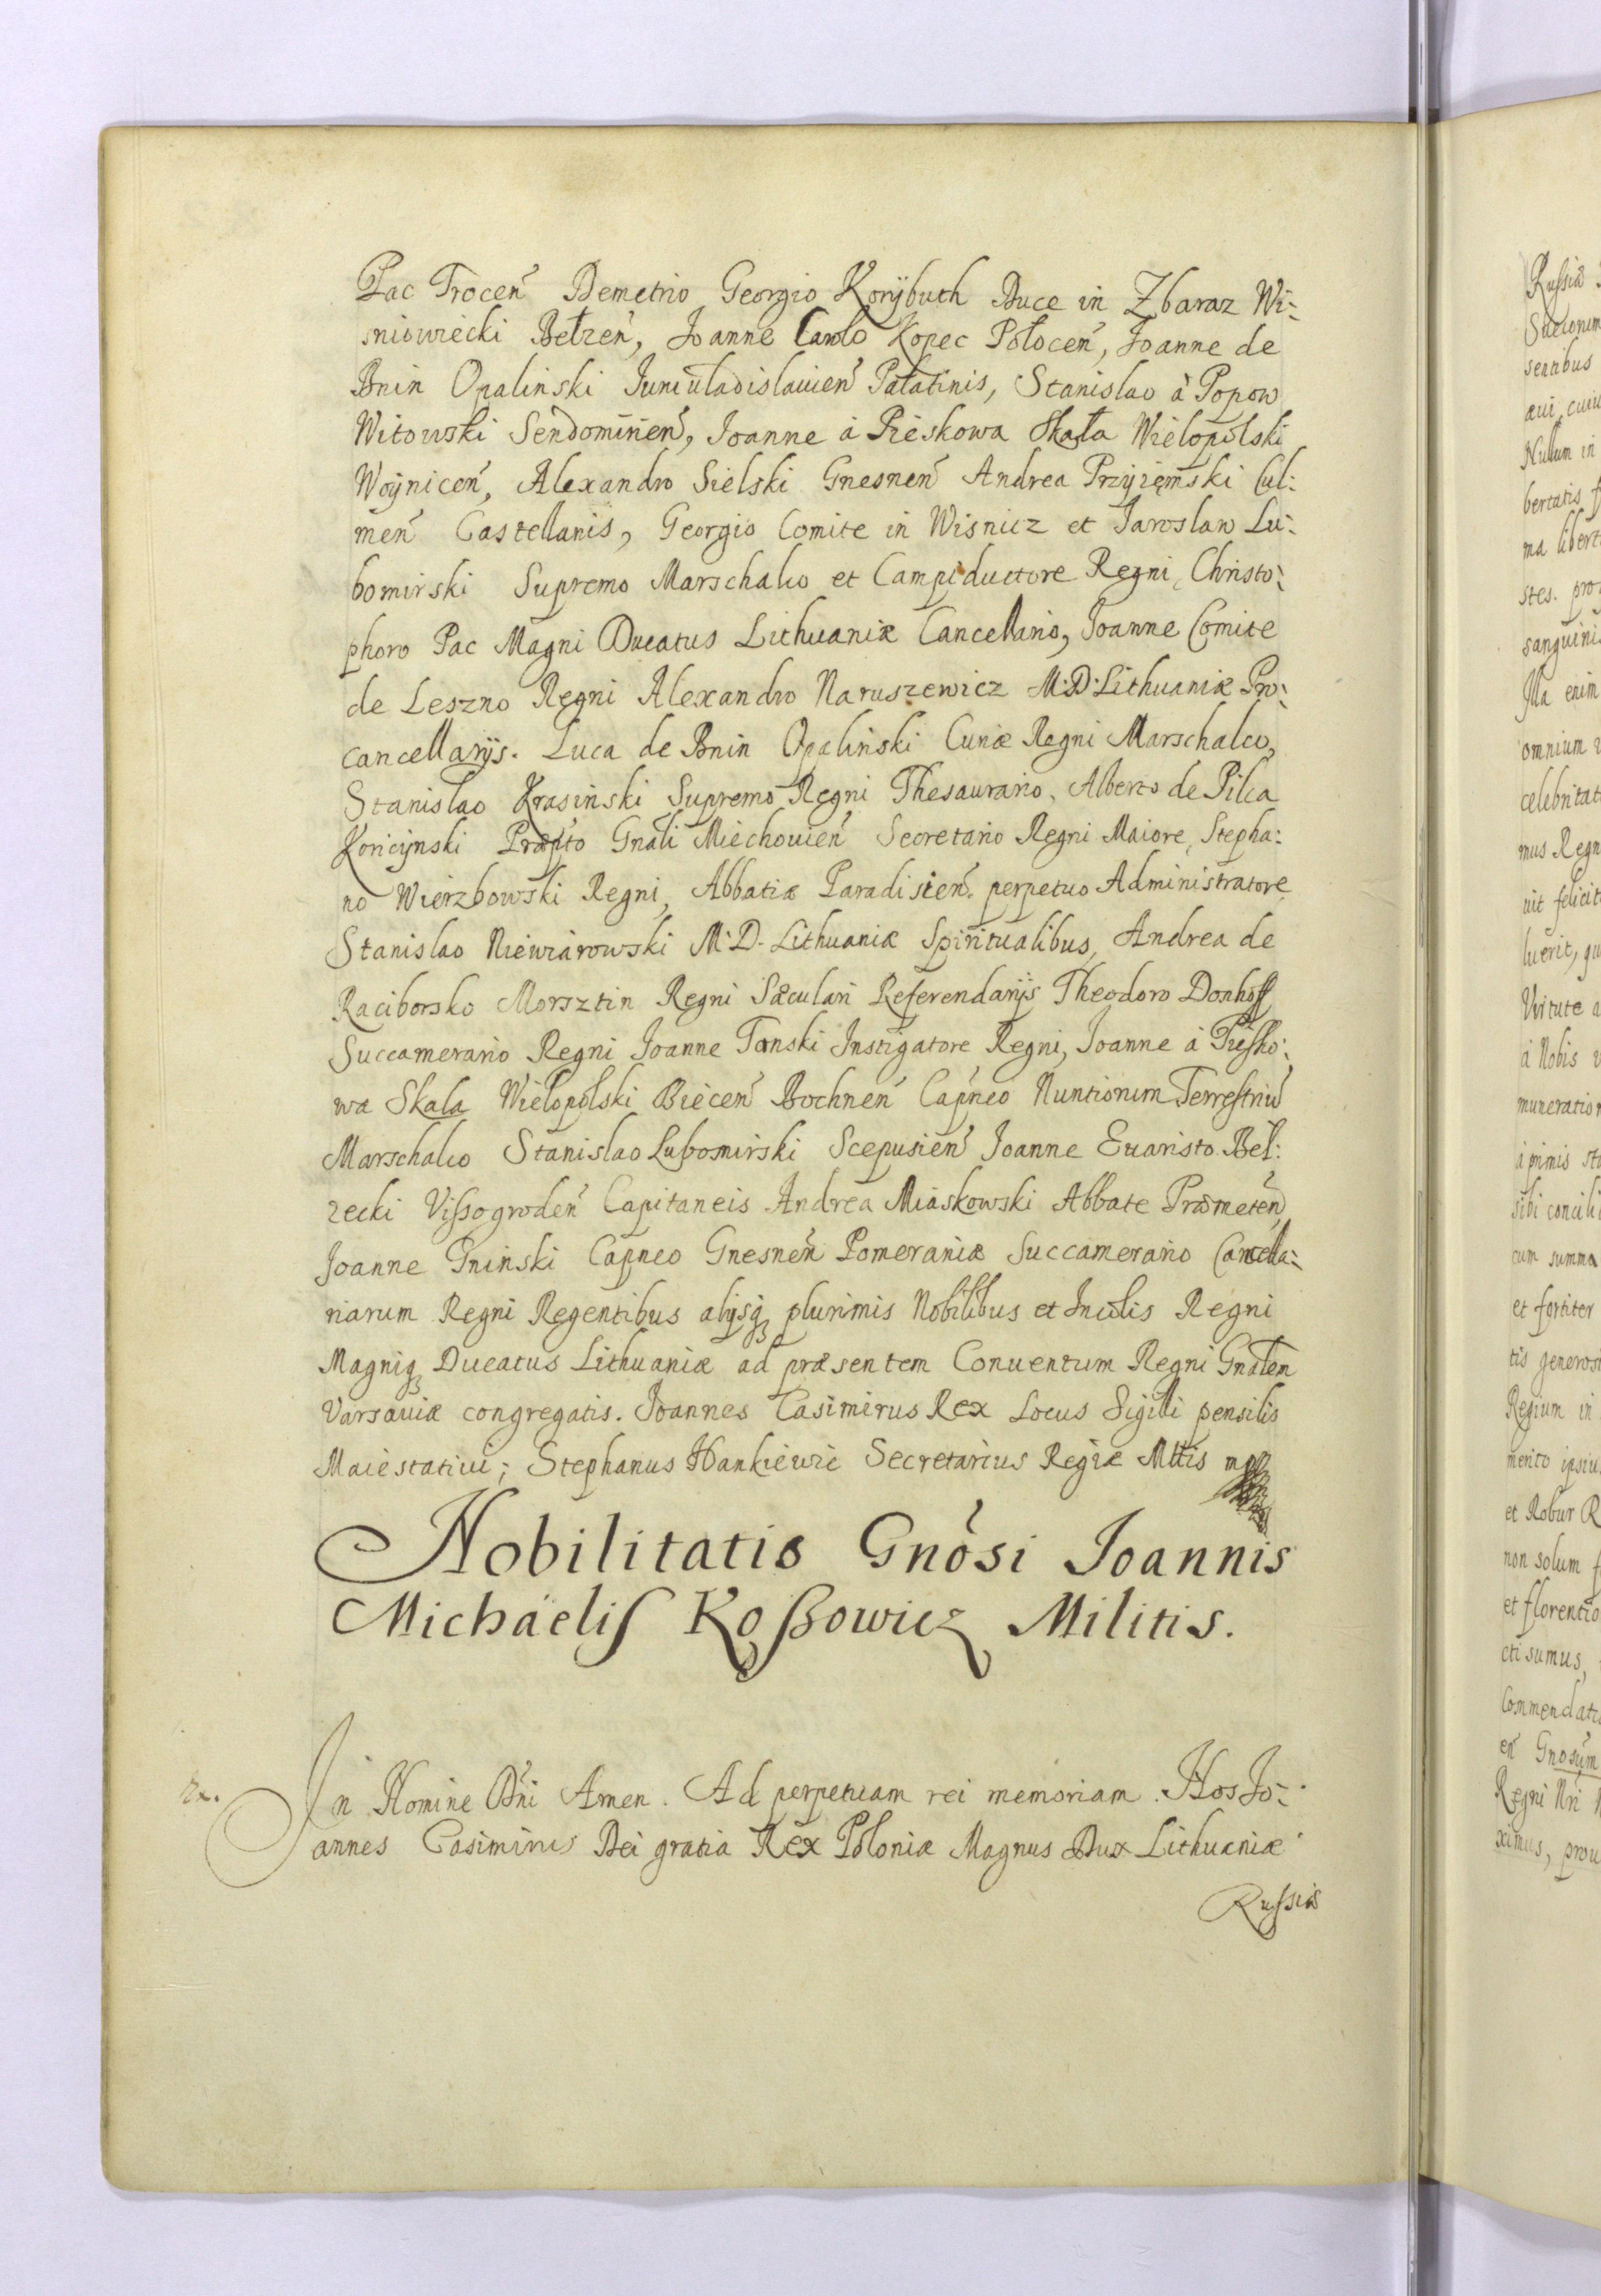 Pac Trocen̄ Demetrio Georgio Korÿbuth Duce in Zbaraz Wi:
sniowiecki Bełzen̄, Joanne Carolo Kopec Połocen̄, Joanne de
Bnin Opaliński Juniuladislauien̄ Palatinis, Stanislao à Popow
Witowski Sendomirien̄, Joanne à Pieskowa Skała Wielopolski
Woÿnicen̄, Alexandro Sielski Gnesnen̄ Andrea Przÿięmski Cul:
men̄ Castellanis, Georgio Comite in Wisnicz et Jaroslaw Lu:
bomirski Supremo Marschalco et Campiductore Regni, Christo:
phoro Pac Magni Ducatus Lithuaniæ Cancellario, Joanne Comite
de Leszno Regni Alexandro Naruszewicz M:D:Lithuaniæ Pro:
cancellarijs. Luca de Bnin Opaliński Curiæ Regni Marschalco,
Stanislao Krasinski Supremo Regni Thesaurario, Alberto de Pilca
Koricÿnski Præpto Gnāli Miechouien̄ Secretario Regni Maiore, Stepha:
no Wierzbowski Regni, Abbatiæ Paradisien̄. perpetuo Administratore
Stanislao Niewiarowski M:D. Lithuaniæ Spiritualibus, Andrea de
Raciborsko Morsztin Regni Sæculari Referendarijs Theodoro Donhoff
Succamerario Regni Joanne Tanski Instigatore Regni, Joanne à Piesko:
wa Skala Wielopolski Biecen̄ Bochnen̄ Capn̄eo Nuntiorum Terrestriū
Marschalco Stanislao Lubomirski Scepusien̄ Joanne Euaristo Beł:
zecki Vissogroden̄ Capitaneis Andrea Miaskowski Abbate Præmeten̄,
Joanne Gninski Capneo Gnesnen̄ Pomeraniæ Succamerario Cancella:
riarum Regni Regentibus alijsq₃ plurimis Nobilibus et Incolis Regni
Magniq₃ Ducatus Lithuaniæ ad præsentem Conuentum Regni Gnālem
Varsauiæ congregatis. Joannes Casimirus Rex Locus Sigilli pensilis
Maiestatiui; Stephanus Hankiewic Secretarius Regiæ Mttis mp
Nobilitatio Gnōsi Joannis
Michäelis Koßowicz Militis.
In Nomine Dn̄i Amen. Ad perpetuam rei memoriam. Nos Jo:
annes Casimirus Dei gratia Rex Poloniæ Magnus Dux Lithuaniæ
Russiæ
Russiæ
Suecorum
sentibus
æui, cuiu
Nullum in
bertatis f
ma libert
stes. pro
sanguinis
Illa enim
omnium
celebritat
mus Regn
nit felicit
luerit, qu
Virtute a
à Nobis
muneration
à primis sta
sibi concili
cum summa
et fortiter
tis generosi
Regium in
merito ipsiu
et Robur R
non solum f
et florentio
cti sumus,
Commendati
en̄ Gnosum
Regni Nri
ximus, prou